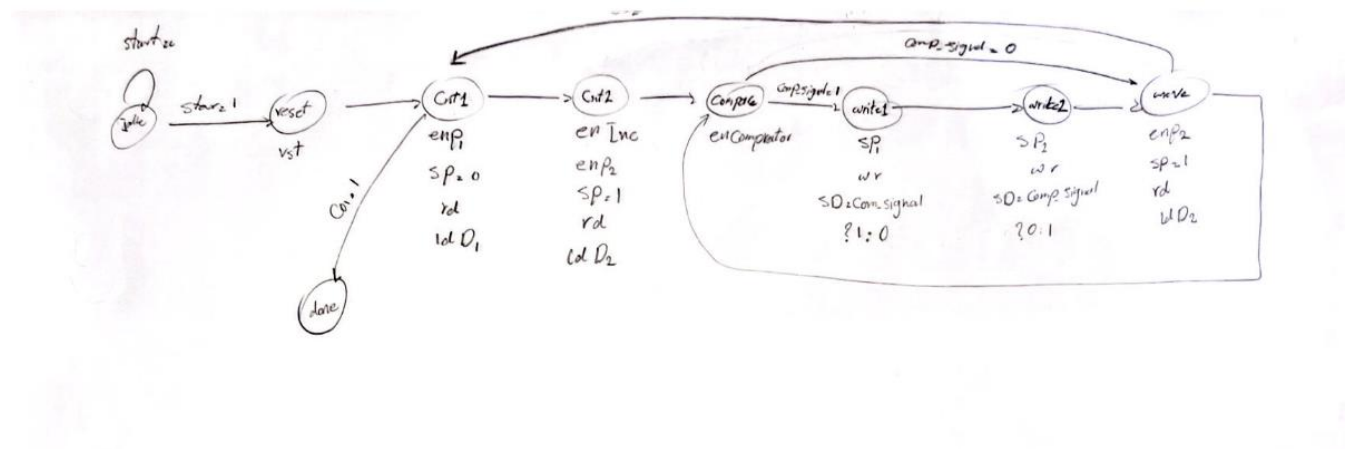 start=0
Idle
start=1
reset
rst
Cnt1
enp1
sp=0
rd
ld D1
Co1=1
done
Cnt2
en Inc
enp2
sp=1
rd
ld D2
Compare
enComprator
Comp_signal=1
Comp_signal=0
write1
SP1
wr
SD=Com_signal
?1:0
write2
SP2
wr
SD=Comp_signal
?0:1
enp2
sp=1
rd
ld D2